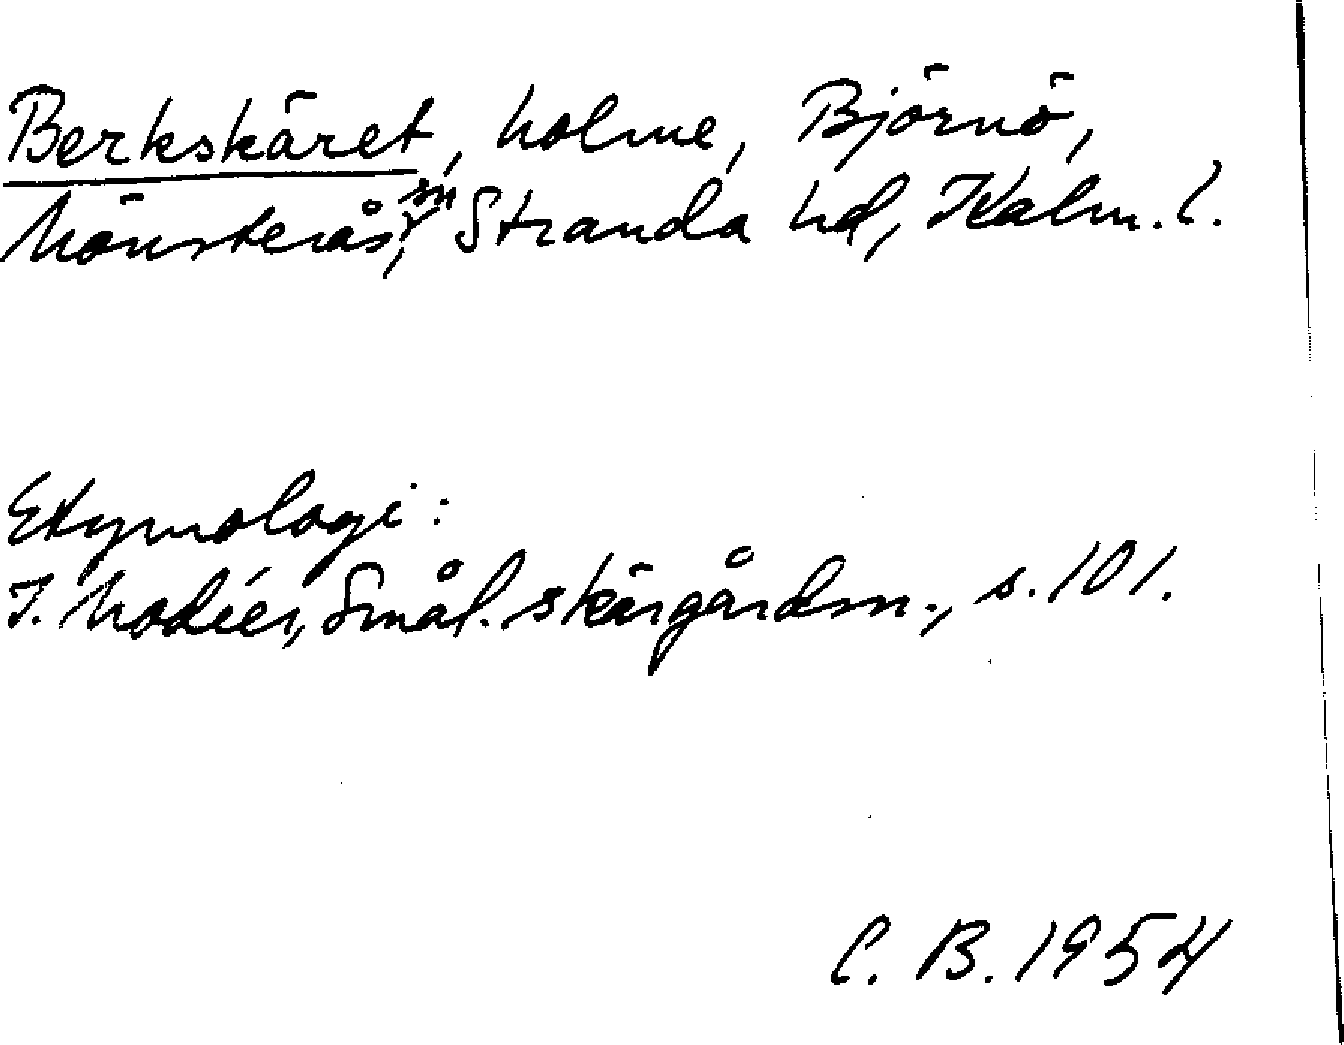 Berkskäret, holme, Björnö,
Mönsterås sn, Stranda hd, Kalm. l.
Etymologi:
I. Modéer, Smål. skärgårdsn., s. 101.
C. B. 1954